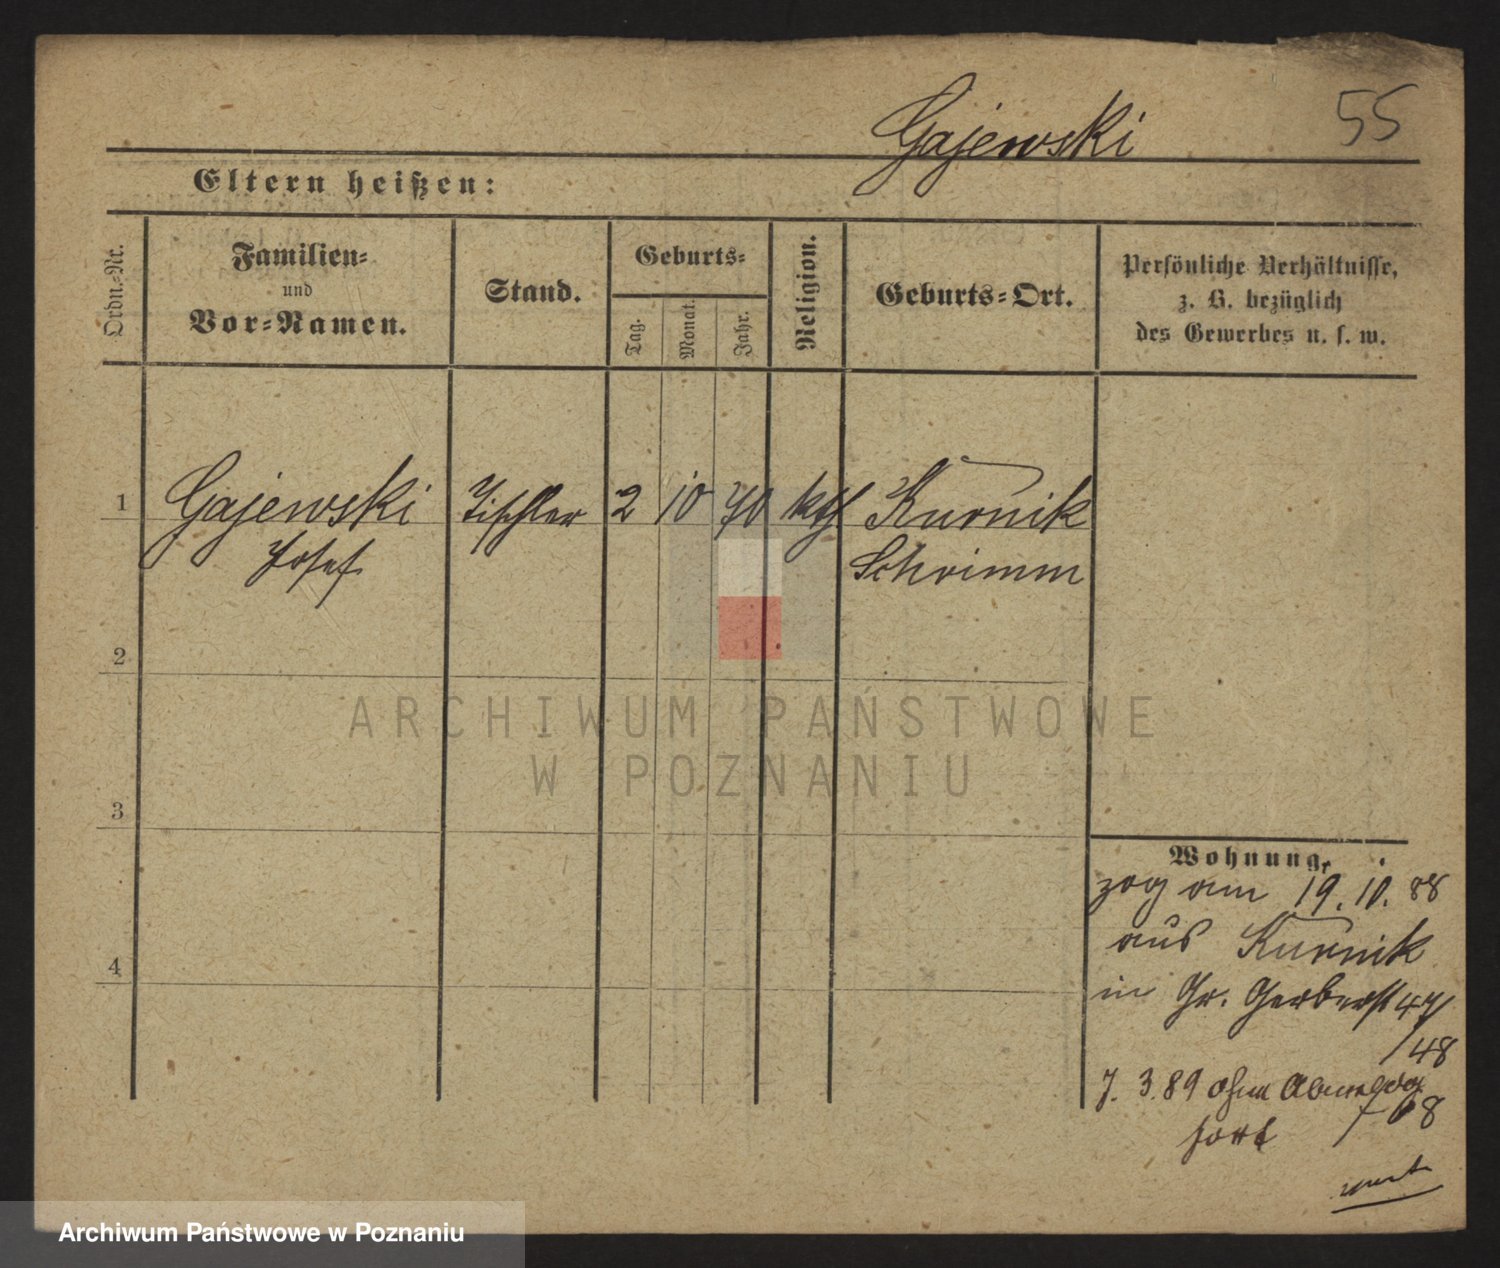 Gajewski 55
Eltern heißen:
Ordn.-Nr.
Familien-
und
Vor-Namen.
Stand.
Geburts-
Tag.
Monat.
Jahr.
Religion.
Geburts-Ort.
Persönliche Verhältnisse,
z. B. bezüglich
des Gewerbes u. s. w.
1 Gajewski Tischler 2 10 70 kth Kurnik
Josef Schrimm
2
3
4
Wohnung.
zog am 19. 10. 88
aus Kurnik
in Gr. Gerberst 47
/48
7. 3. 89 ohne Abmeldg
fort
ARCHIWUM PAŃSTWOWE
W POZNANIU
Archiwum Państwowe w Poznaniu